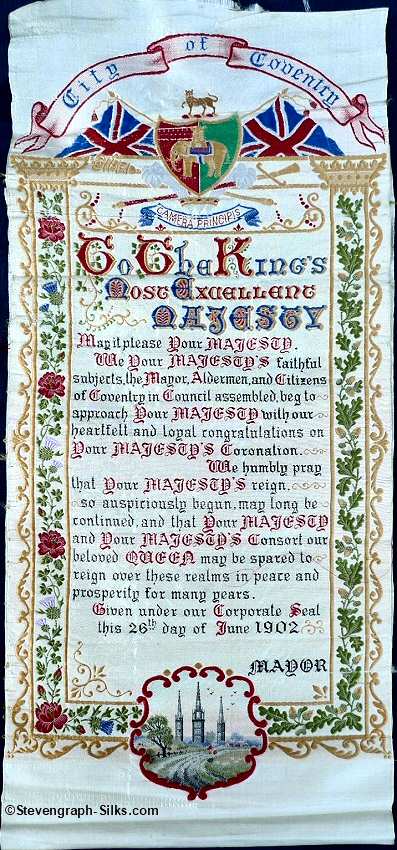 City of Coventry
CAMERA PRINCIPIS
To The King's
Most Excellent
MAJESTY
May it please Your MAJESTY.
We Your MAJESTY'S faithful
subjects, the Mayor, Aldermen, and Citizens
of Coventry in Council assembled, beg to
approach Your MAJESTY with our
heartfelt and loyal congratulations on
Your MAJESTY'S Coronation.
We humbly pray
that Your MAJESTY'S reign.
so auspiciously begun, may long be
continued, and that Your MAJESTY
and Your MAJESTY'S Consort our
beloved QUEEN may be spared to
reign over these realms in peace and
prosperity for many years.
Given under our Corporate Seal
this 26th day of June 1902
MAYOR
©Stevengraph-Silks.com